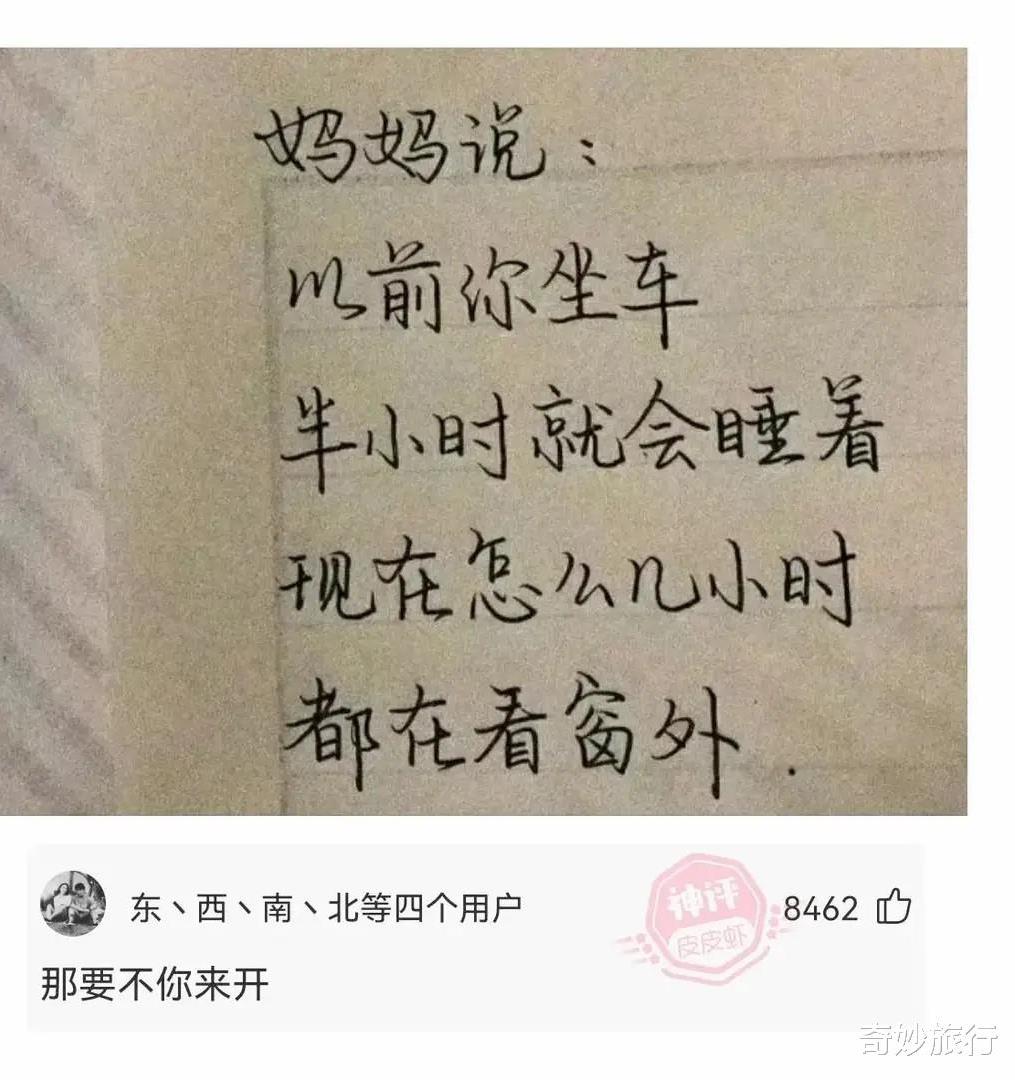 妈妈说：
以前你坐车
半小时就会睡着
现在怎么几小时
都在看窗外.
东丶西丶南丶北等四个用户
神评
皮皮虾
8462
那要不你来开
奇妙旅行